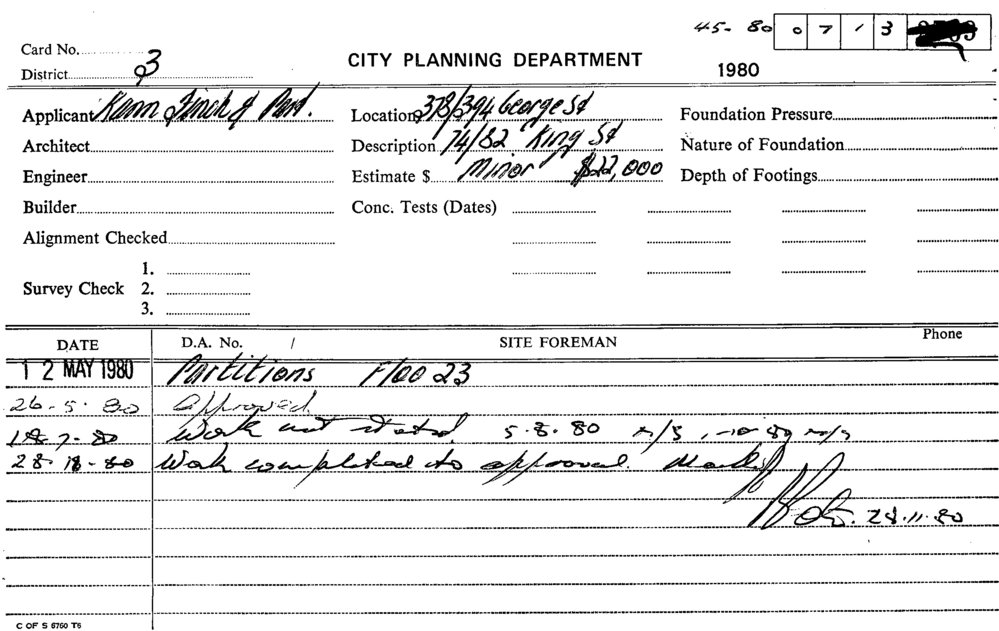 45- 80 0 7 1 3
Card No.
District 3
CITY PLANNING DEPARTMENT
1980
Applicant Kann Finch & Part.
Location 378/394 George St
Foundation Pressure
Architect
Description 74/82 King St
Nature of Foundation
Engineer
Estimate $ Minor $22,000
Depth of Footings
Builder
Conc. Tests (Dates)
Alignment Checked
1.
Survey Check 2.
3.
DATE D.A. No. / SITE FOREMAN Phone
12 MAY 1980 Partitions Floo 23
26-5-80 Approved
Work not stated. 5-8-80 n/s
Work completed to approval.
28.11.80
C OF S 6760 T6